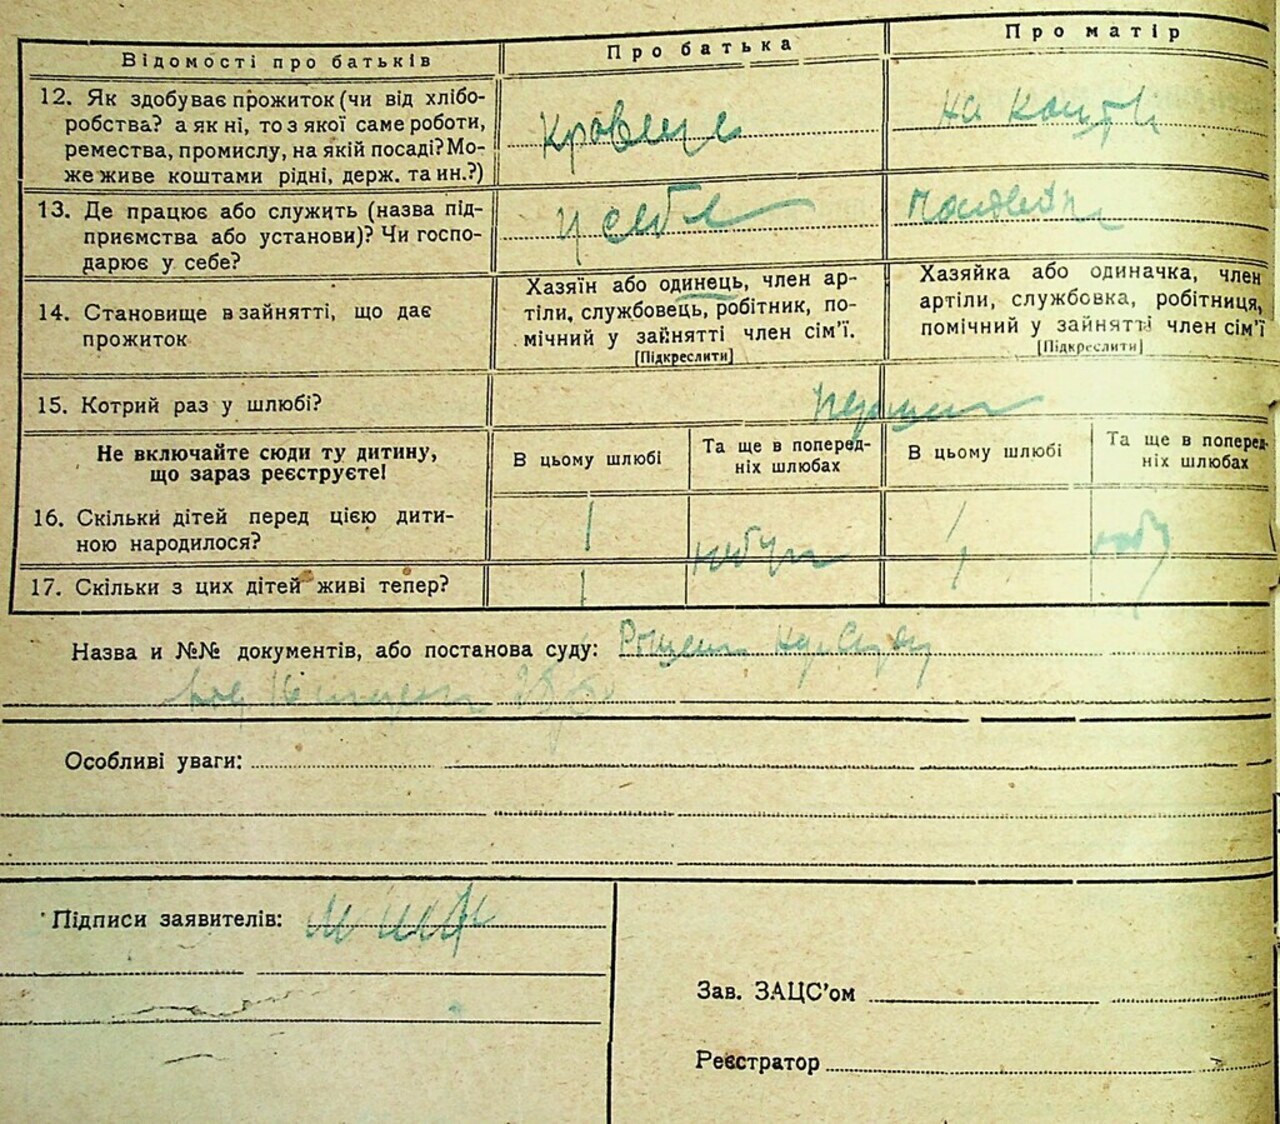 Відомості про батьків
Про батька
Про матір
12. Як здобуває прожиток (чи від хлібо-
робства? а як ні, то з якої саме роботи,
ремества, промислу, на якій посаді? Мо-
же живе коштами рідні, держ. та ин.?)
кравець
на кошти
13. Де працює або служить (назва під-
приємства або установи)? Чи госпо-
дарює у себе?
у себе
14. Становище в зайнятті, що дає
прожиток
Хазяїн або одинець, член ар-
тіли, службовець, робітник, по-
мічний у зайнятті член сім'ї.
[Підкреслити]
Хазяйка або одиначка, член
артіли, службовка, робітниця,
помічний у зайнятті член сім'ї
[Підкреслити]
15. Котрий раз у шлюбі?
Не включайте сюди ту дитину,
що зараз реєструєте!
В цьому шлюбі
Та ще в поперед-
ніх шлюбах
В цьому шлюбі
Та ще в поперед-
ніх шлюбах
16. Скільки дітей перед цією дити-
ною народилося?
1
1
17. Скільки з цих дітей живі тепер?
1
1
Назва и №№ документів, або постанова суду:
Особливі уваги:
Підписи заявителів:
Зав. ЗАЦС'ом
Реєстратор